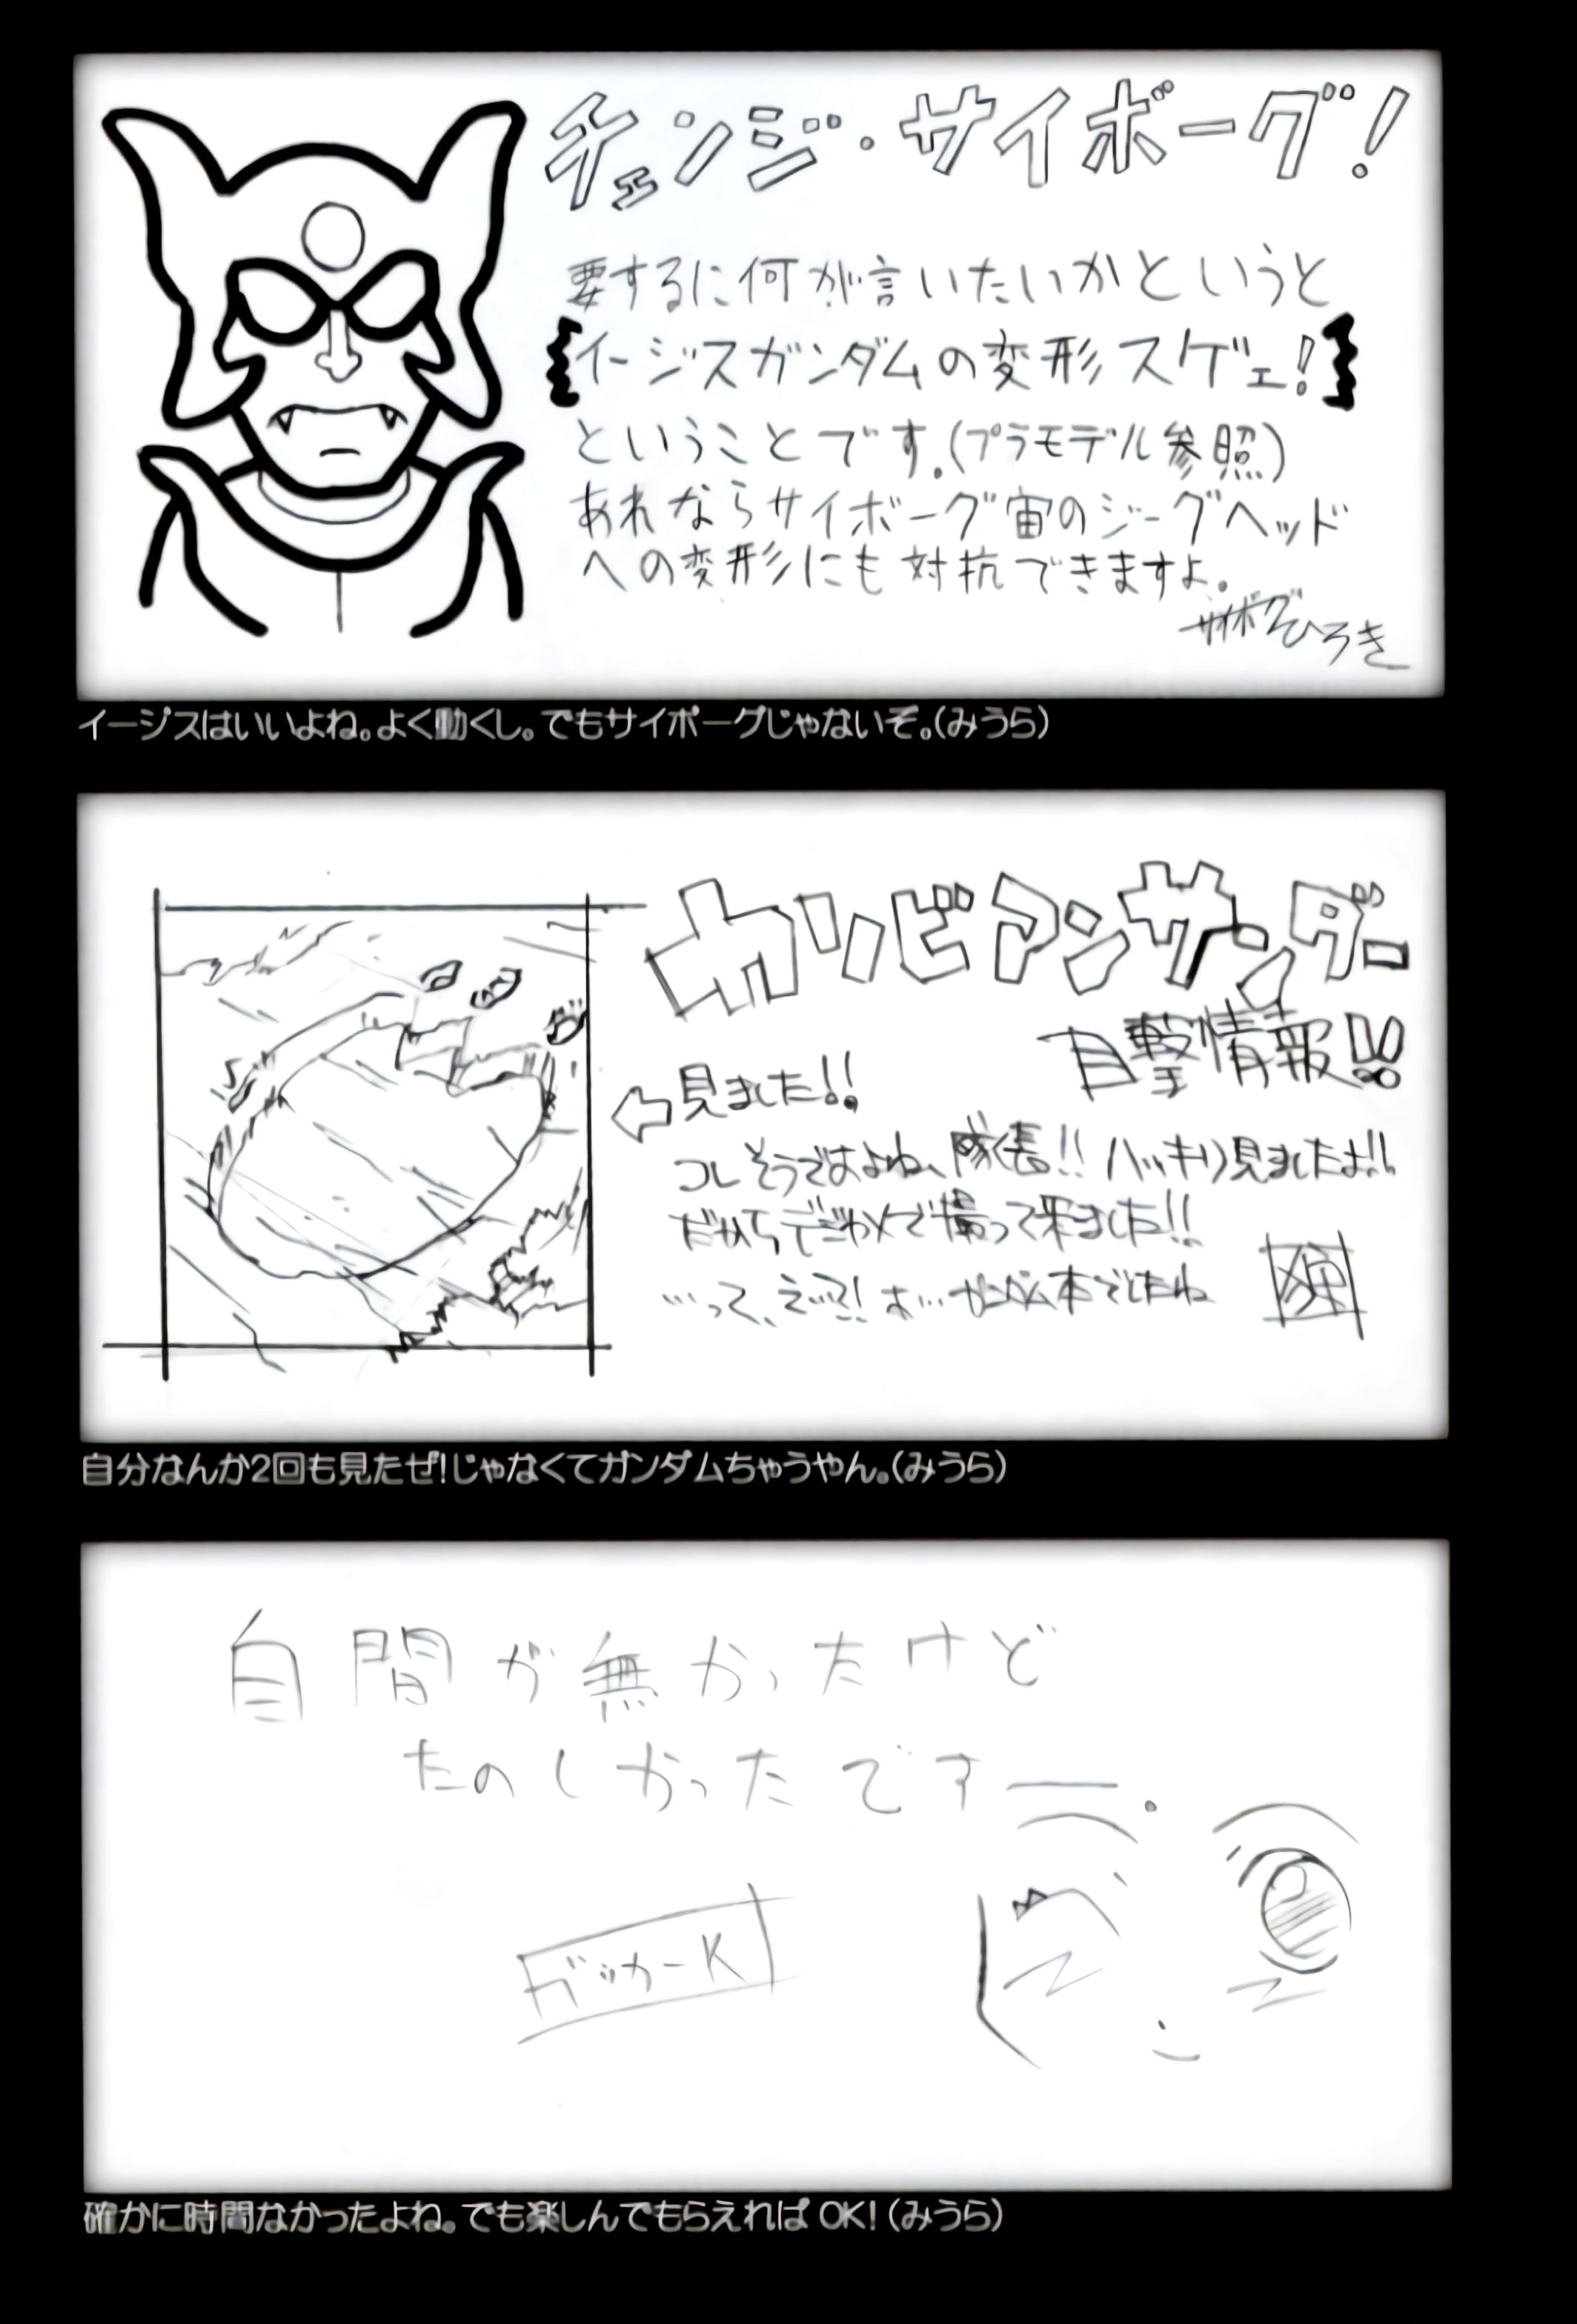 チェンジ・サイボーグ!
要するに何が言いたいかというと
イージスガンダムの変形スゲェ!
ということです。(プラモデル参照)
あれならサイボーグ宙のジーグヘッド
への変形にも対抗できますよ。
サイボーグひろき
イージスはいいよね。よく動くし。でもサイボーグじゃないぞ。(みうら)
カリビアンサンダー
目撃情報!!
見ました!!
コレそうですよね、隊長!! ハッキリ見ましたよ!!
だからデジカメで撮って来ました!!
…って、えっ?! あ…ガンダム本でしたね
自分なんか2回も見たぜ!じゃなくてガンダムちゃうやん。(みうら)
自間が無かったけど
たのしかったですー.
ガッカーK
確かに時間なかったよね。でも楽しんでもらえれば OK!(みうら)